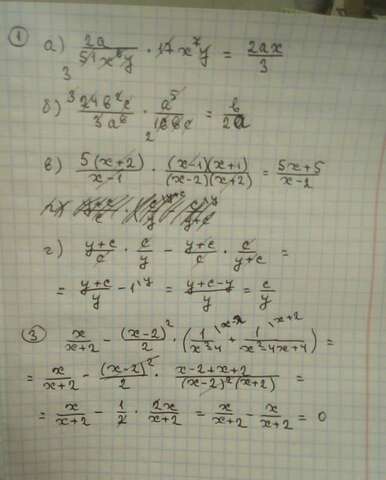 1 а) 2a/51x⁶y · 17x⁷y = 2ax/3
3
б) 24b²c/3a⁶ · a⁵/16bc = b/2a
3 2
в) 5(x+2)/x-1 · (x-1)(x+1)/(x-2)(x+2) = 5x+5/x-2
г) y+c/c · c/y - y+c/c · c/y+c =
= y+c/y - 1\y = y+c-y/y = c/y
3 x/x+2 - (x-2)²/2 · (1\x-2/x²-4 + 1\x+2/x²-4x+4) =
= x/x+2 - (x-2)²/2 · x-2+x+2/(x-2)²(x+2) =
= x/x+2 - 1/2 · 2x/x+2 = x/x+2 - x/x+2 = 0